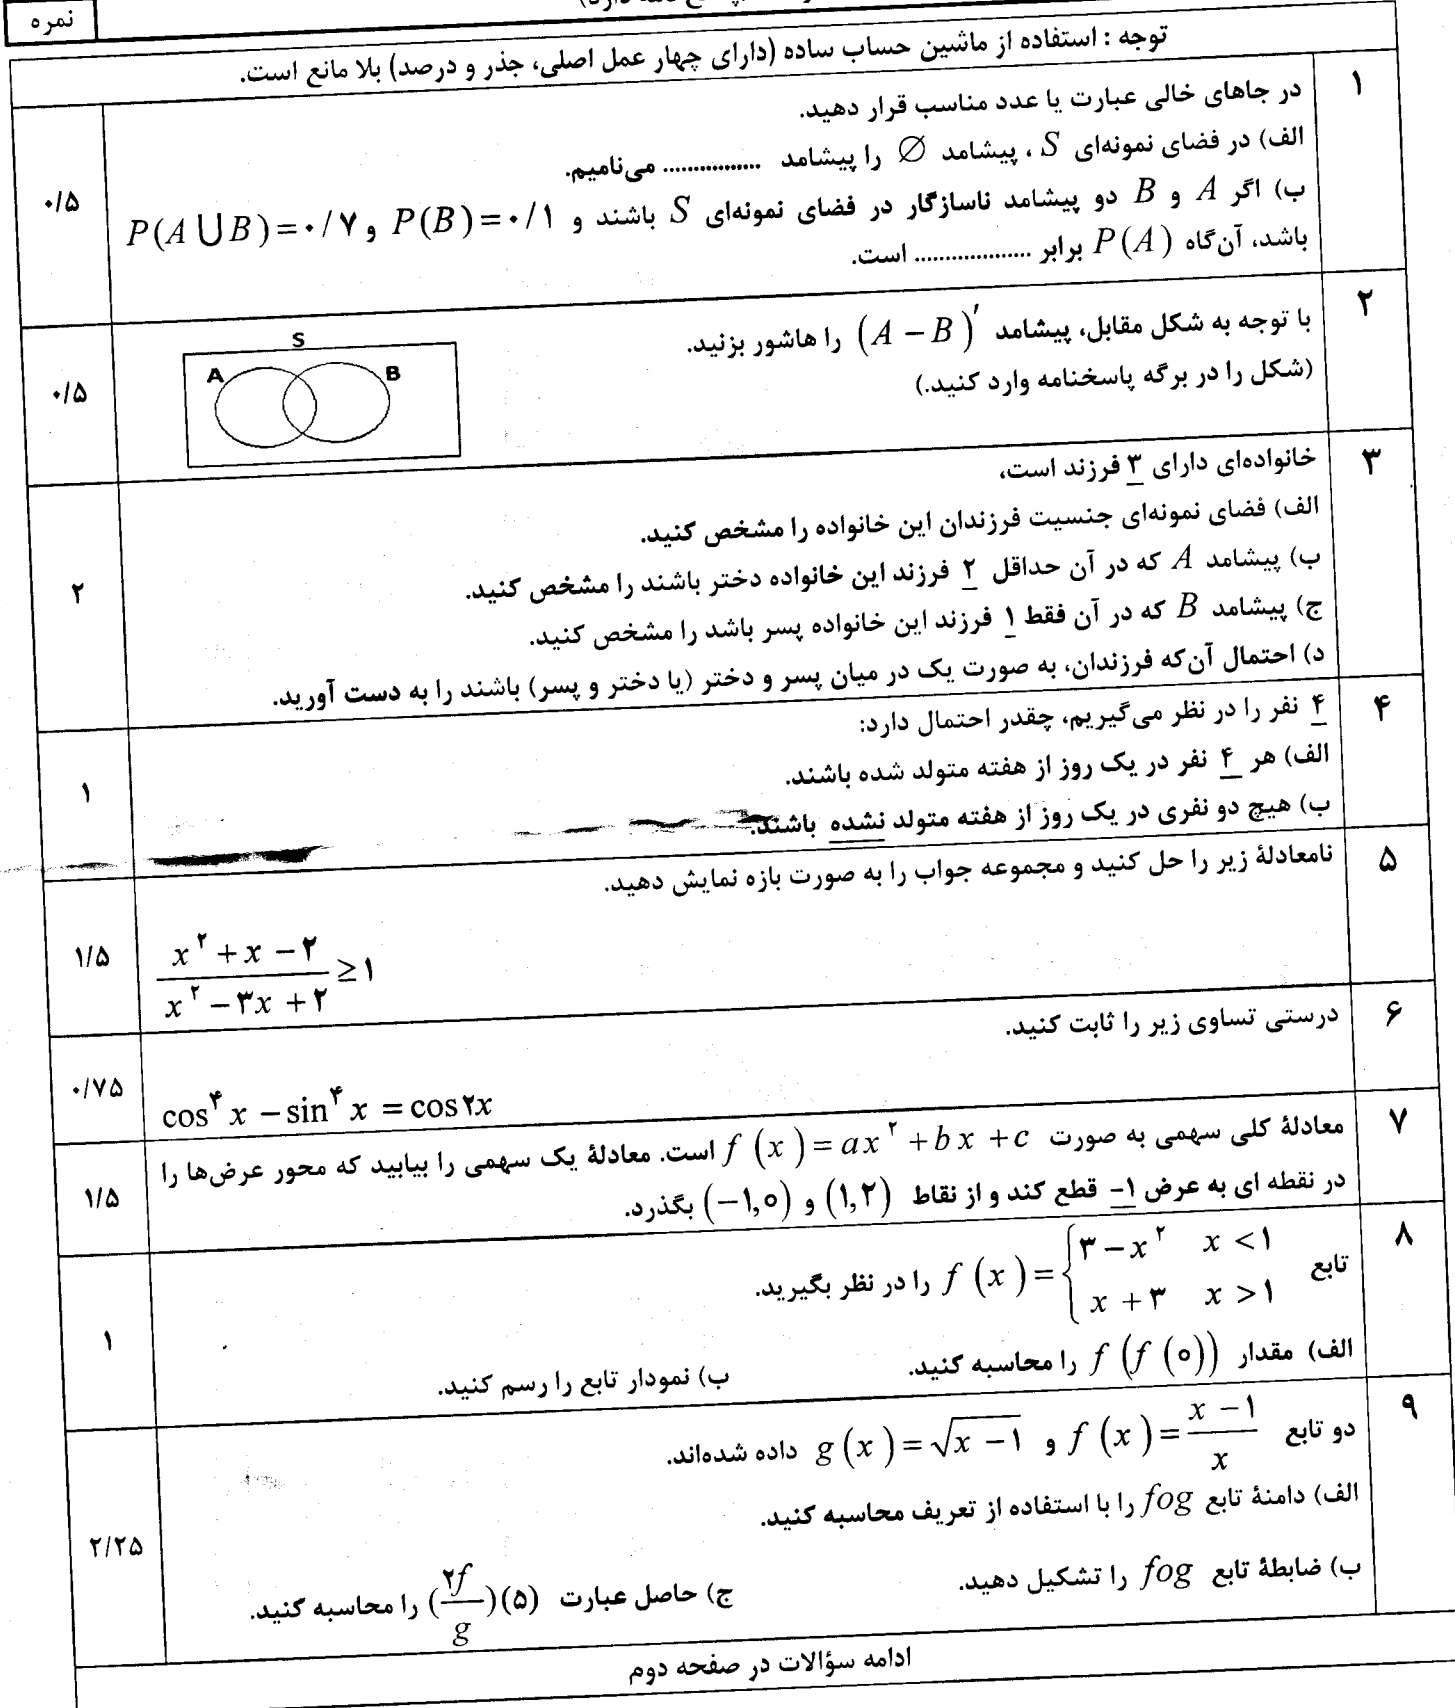 نمره
توجه : استفاده از ماشین حساب ساده (دارای چهار عمل اصلی، جذر و درصد) بلا مانع است.
۱
در جاهای خالی عبارت یا عدد مناسب قرار دهید.
الف) در فضای نمونه‌ای S ، پیشامد ∅ را پیشامد ................ می‌نامیم.
ب) اگر A و B دو پیشامد ناسازگار در فضای نمونه‌ای S باشند و P(B)=۰/۱ و P(A ∪ B)=۰/۷
باشد، آن‌گاه P(A) برابر ................... است.
۰/۵
۲
با توجه به شکل مقابل، پیشامد (A − B)′ را هاشور بزنید.
(شکل را در برگه پاسخنامه وارد کنید.)
S
A B
۰/۵
۳
خانواده‌ای دارای ۳ فرزند است،
الف) فضای نمونه‌ای جنسیت فرزندان این خانواده را مشخص کنید.
ب) پیشامد A که در آن حداقل ۲ فرزند این خانواده دختر باشند را مشخص کنید.
ج) پیشامد B که در آن فقط ۱ فرزند این خانواده پسر باشد را مشخص کنید.
د) احتمال آن‌که فرزندان، به صورت یک در میان پسر و دختر (یا دختر و پسر) باشند را به دست آورید.
۲
۴
۴ نفر را در نظر می‌گیریم، چقدر احتمال دارد:
الف) هر ۴ نفر در یک روز از هفته متولد شده باشند.
ب) هیچ دو نفری در یک روز از هفته متولد نشده باشند.
۱
۵
نامعادلهٔ زیر را حل کنید و مجموعه جواب را به صورت بازه نمایش دهید.
(x² + x − ۲)/(x² − ۳x + ۲) ≥ ۱
۱/۵
۶
درستی تساوی زیر را ثابت کنید.
cos⁴ x − sin⁴ x = cos ۲x
۰/۷۵
۷
معادلهٔ کلی سهمی به صورت f (x) = ax² + bx + c است. معادلهٔ یک سهمی را بیابید که محور عرض‌ها را
در نقطه ای به عرض ۱− قطع کند و از نقاط (۱,۲) و (−۱,۰) بگذرد.
۱/۵
۸
تابع f (x) = { ۳ − x² x < ۱
x + ۳ x > ۱ را در نظر بگیرید.
الف) مقدار f (f (۰)) را محاسبه کنید. ب) نمودار تابع را رسم کنید.
۱
۹
دو تابع f (x) = (x − ۱)/x و g (x) = √(x − ۱) داده شده‌اند.
الف) دامنهٔ تابع fog را با استفاده از تعریف محاسبه کنید.
ب) ضابطهٔ تابع fog را تشکیل دهید. ج) حاصل عبارت (۲f/g)(۵) را محاسبه کنید.
۲/۲۵
ادامه سؤالات در صفحه دوم